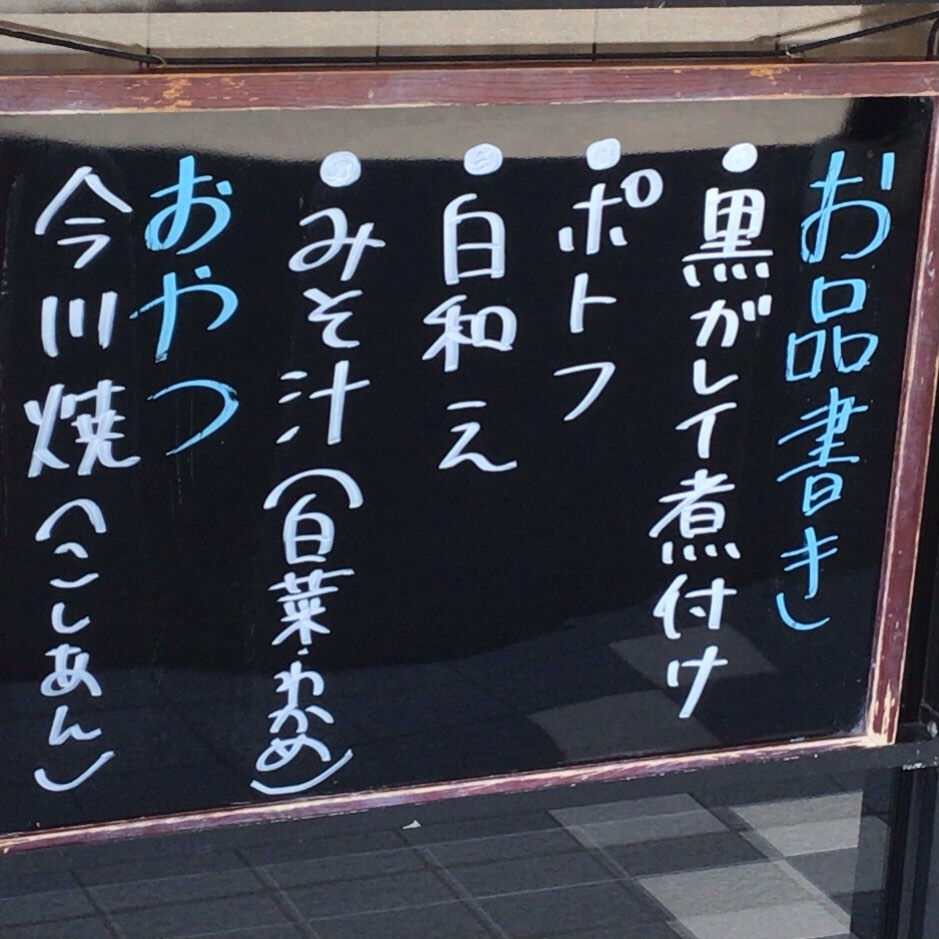 お品書き
●黒ガレイ煮付け
●ポトフ
●白和え
●みそ汁(白菜・わかめ)
おやつ
今川焼(こしあん)